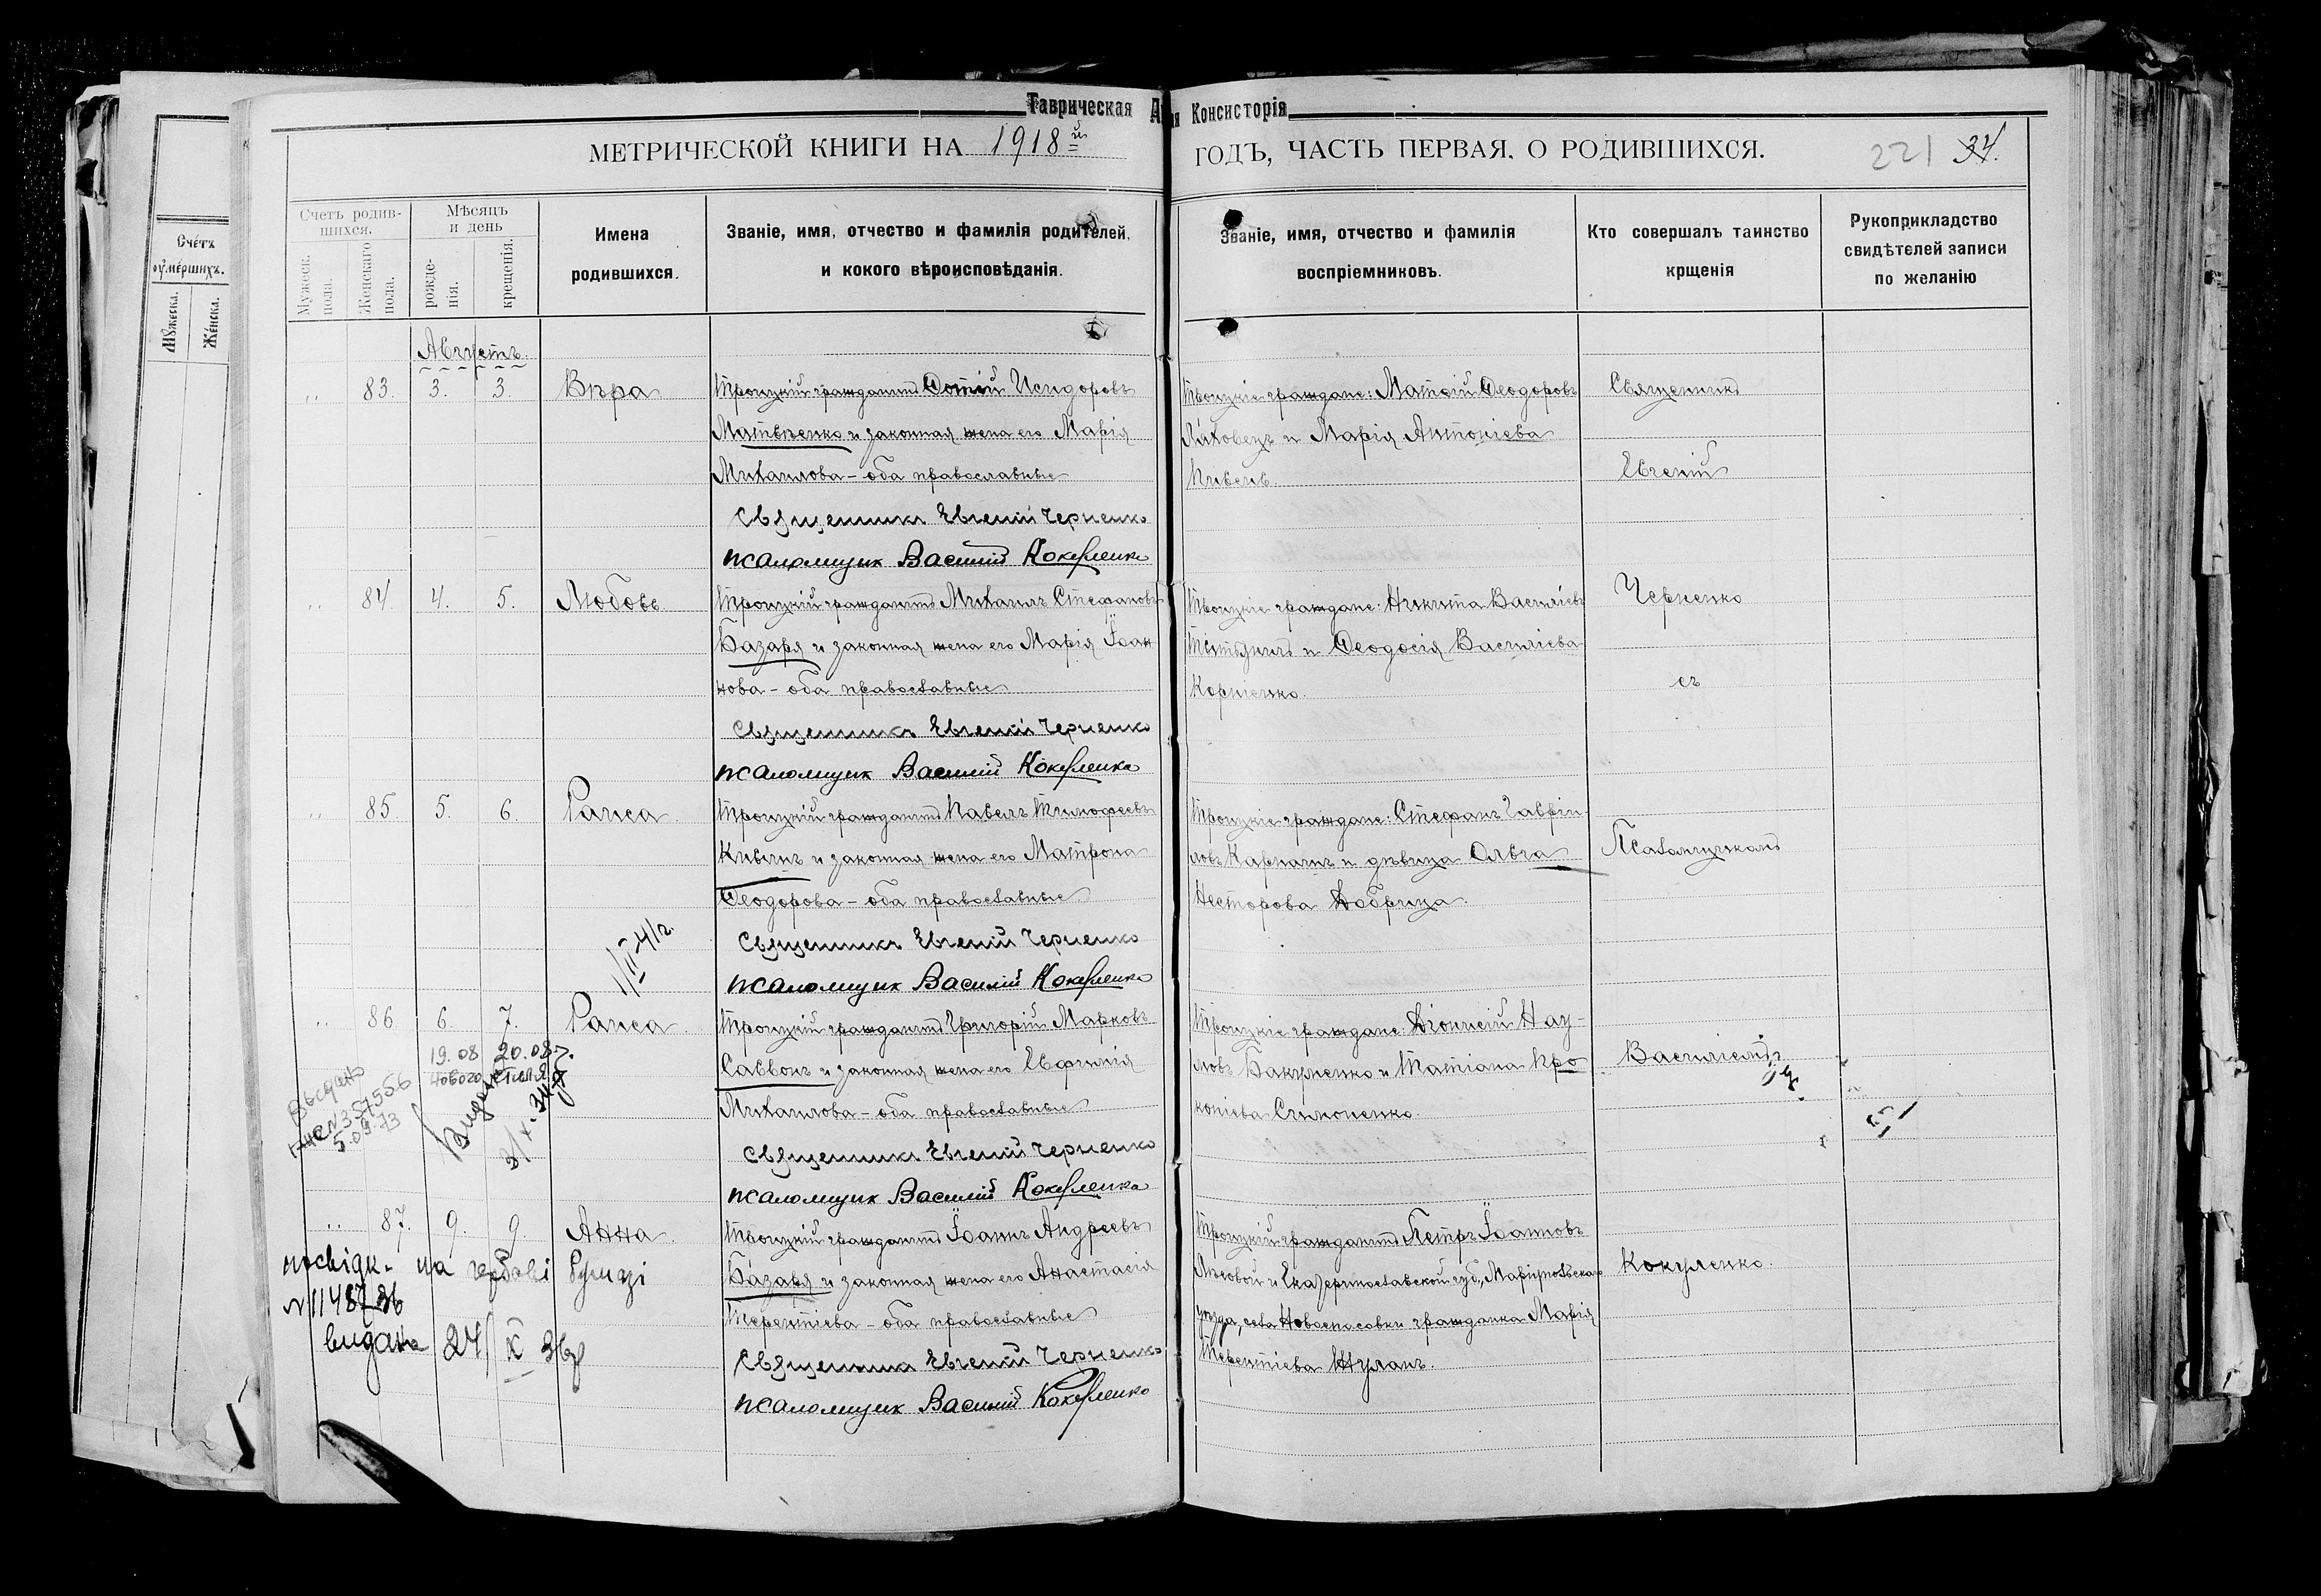 Таврическая
Консисторія
МЕТРИЧЕСКОЙ КНИГИ НА 1918й
ГОДЪ, ЧАСТЬ ПЕРВАЯ, О РОДИВШИХСЯ.
221 34.
Счётъ
оумершихъ.
Мужеска.
Женска.
Счетъ родив-
шихся.
Мужеск.
пола.
Женскаго
пола.
Мѣсяцъ
и день
рожде-
нія.
крещенія.
Имена
родившихся.
Званіе, имя, отчество и фамилія родителей,
и кокого вѣроисповѣданія.
Званіе, имя, отчество и фамилія
воспріемниковъ.
Кто совершалъ таинство
крщенія
Рукоприкладство
свидѣтелей записи
по желанію
Августъ.
„ 83. 3. 3. Вѣра
Троицкій гражданинъ Фотій Исидоровъ
Матвѣенко и законная жена его Марія
Михаилова - оба православные
Священникъ Евгеній Черненко
псаломщик Василий Кокуленко
Троицкіе граждане: Матѳій Ѳеодоровъ
Ляховецъ и Марія Антоніева
„ 84. 4. 5. Любовь
Троицкій гражданинъ Михаилъ Стефановъ
Базаря и законная жена его Марія Іоан
нова - оба православные
Священникъ Евгеній Черненко
псаломщик Василий Кокуленко
Троицкіе граждане: Никита Василіевъ
и Ѳеодосія Василіева
Корніенко.
„ 85. 5. 6. Раиса.
Троицкій гражданинъ Павелъ Тимофеевъ
и законная жена его Матрона
Ѳеодорова - оба православные
Священникъ Евгеній Черненко
псаломщик Василий Кокуленко
Троицкіе граждане: Стефанъ Гаврiи
ловъ и дѣвица Ольга
Несторова Добрица.
1/II-41г.
„ 86 6. 7. Раиса.
Троицкій гражданинъ Григорій Марковъ
и законная жена его Евфимія
Михаилова - оба православные
Священникъ Евгеній Черненко
псаломщик Василий Кокуленко
Троицкіе граждане: Діонисій Пау-
ловъ Бакуменко и Татіана Про
копіева Симоненко.
19.08 20.08.
нового стиля
5.09.73
„ 87. 9. 9. Анна.
Троицкій гражданинъ Іоаннъ Андреевъ
Базаря и законная жена его Анастасія
Терентіева - оба православные
Священникъ Евгеній Черненко
псаломщик Василий Кокуленко
Троицкій гражданинъ Петръ Іоанновъ
Лѣсовой и Екатеринославской губ., Маріупольскаго
уѣзда, села Новоспасовки гражданка Марія
Терентіева
посвідк. на гербові
видана 24/X 36р
Священникъ
Евгеній
Черненко
съ
Псаломщикомъ
Василіемъ
Кокуленко.